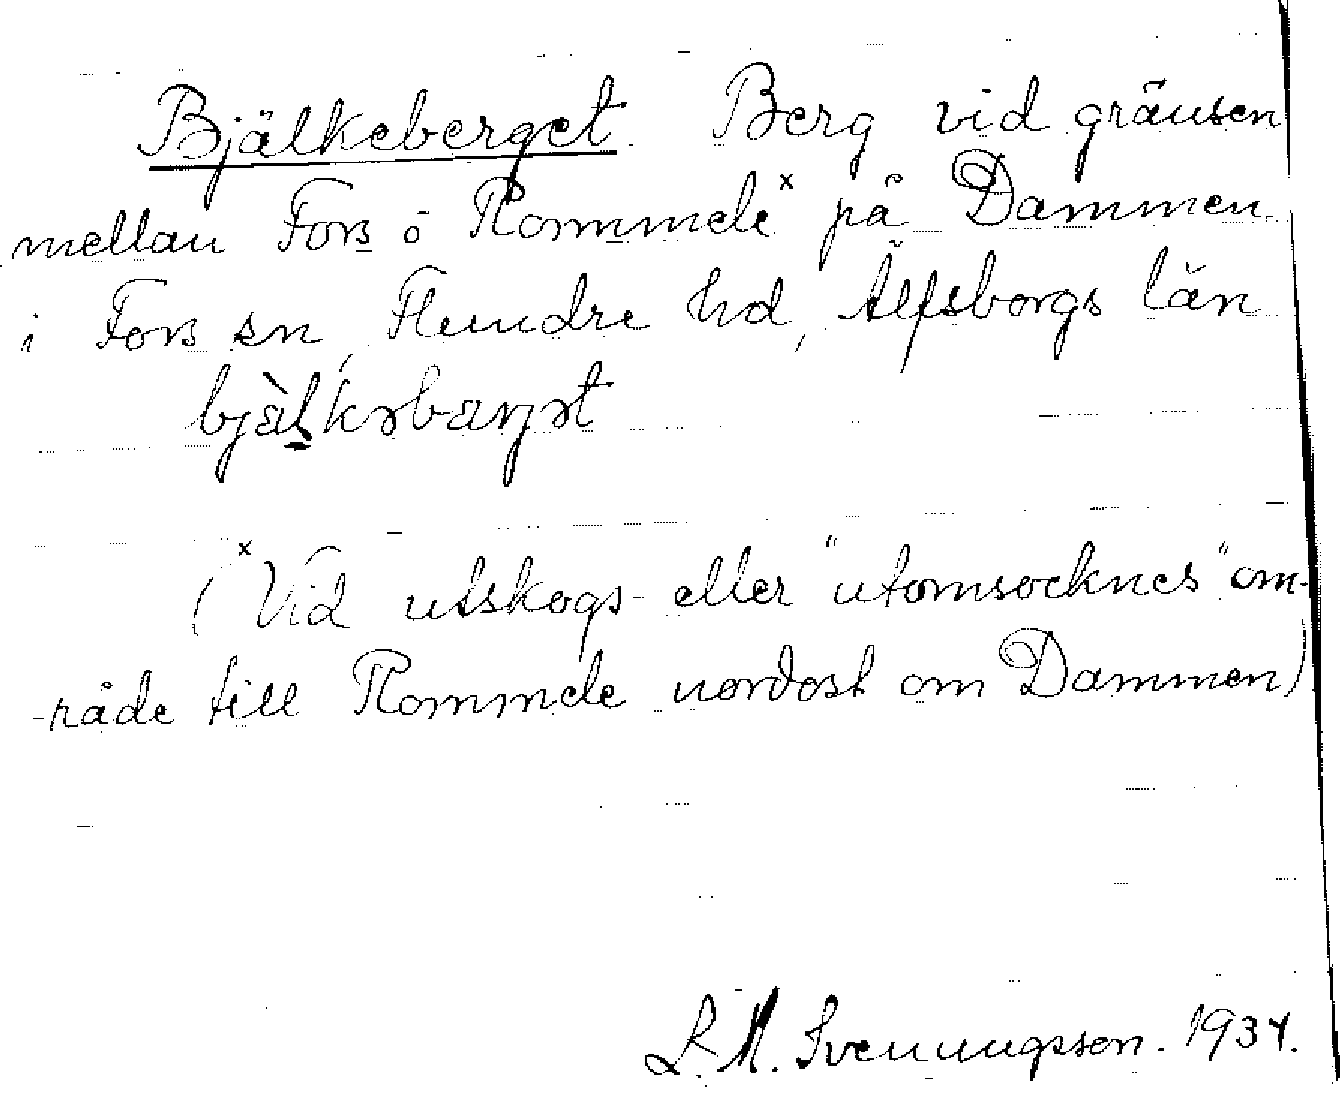 Bjälkeberget. Berg vid gränsen
mellan Fors o Rommeleˣ på Dammen
i Fors sn, Flundre hd, Älfsborgs län
bjàlkəbærjət
(ˣVid utskogs- eller "utomsocknes" om-
-råde till Rommele nordost om Dammen)
L. M. Svenungsson. 1934.